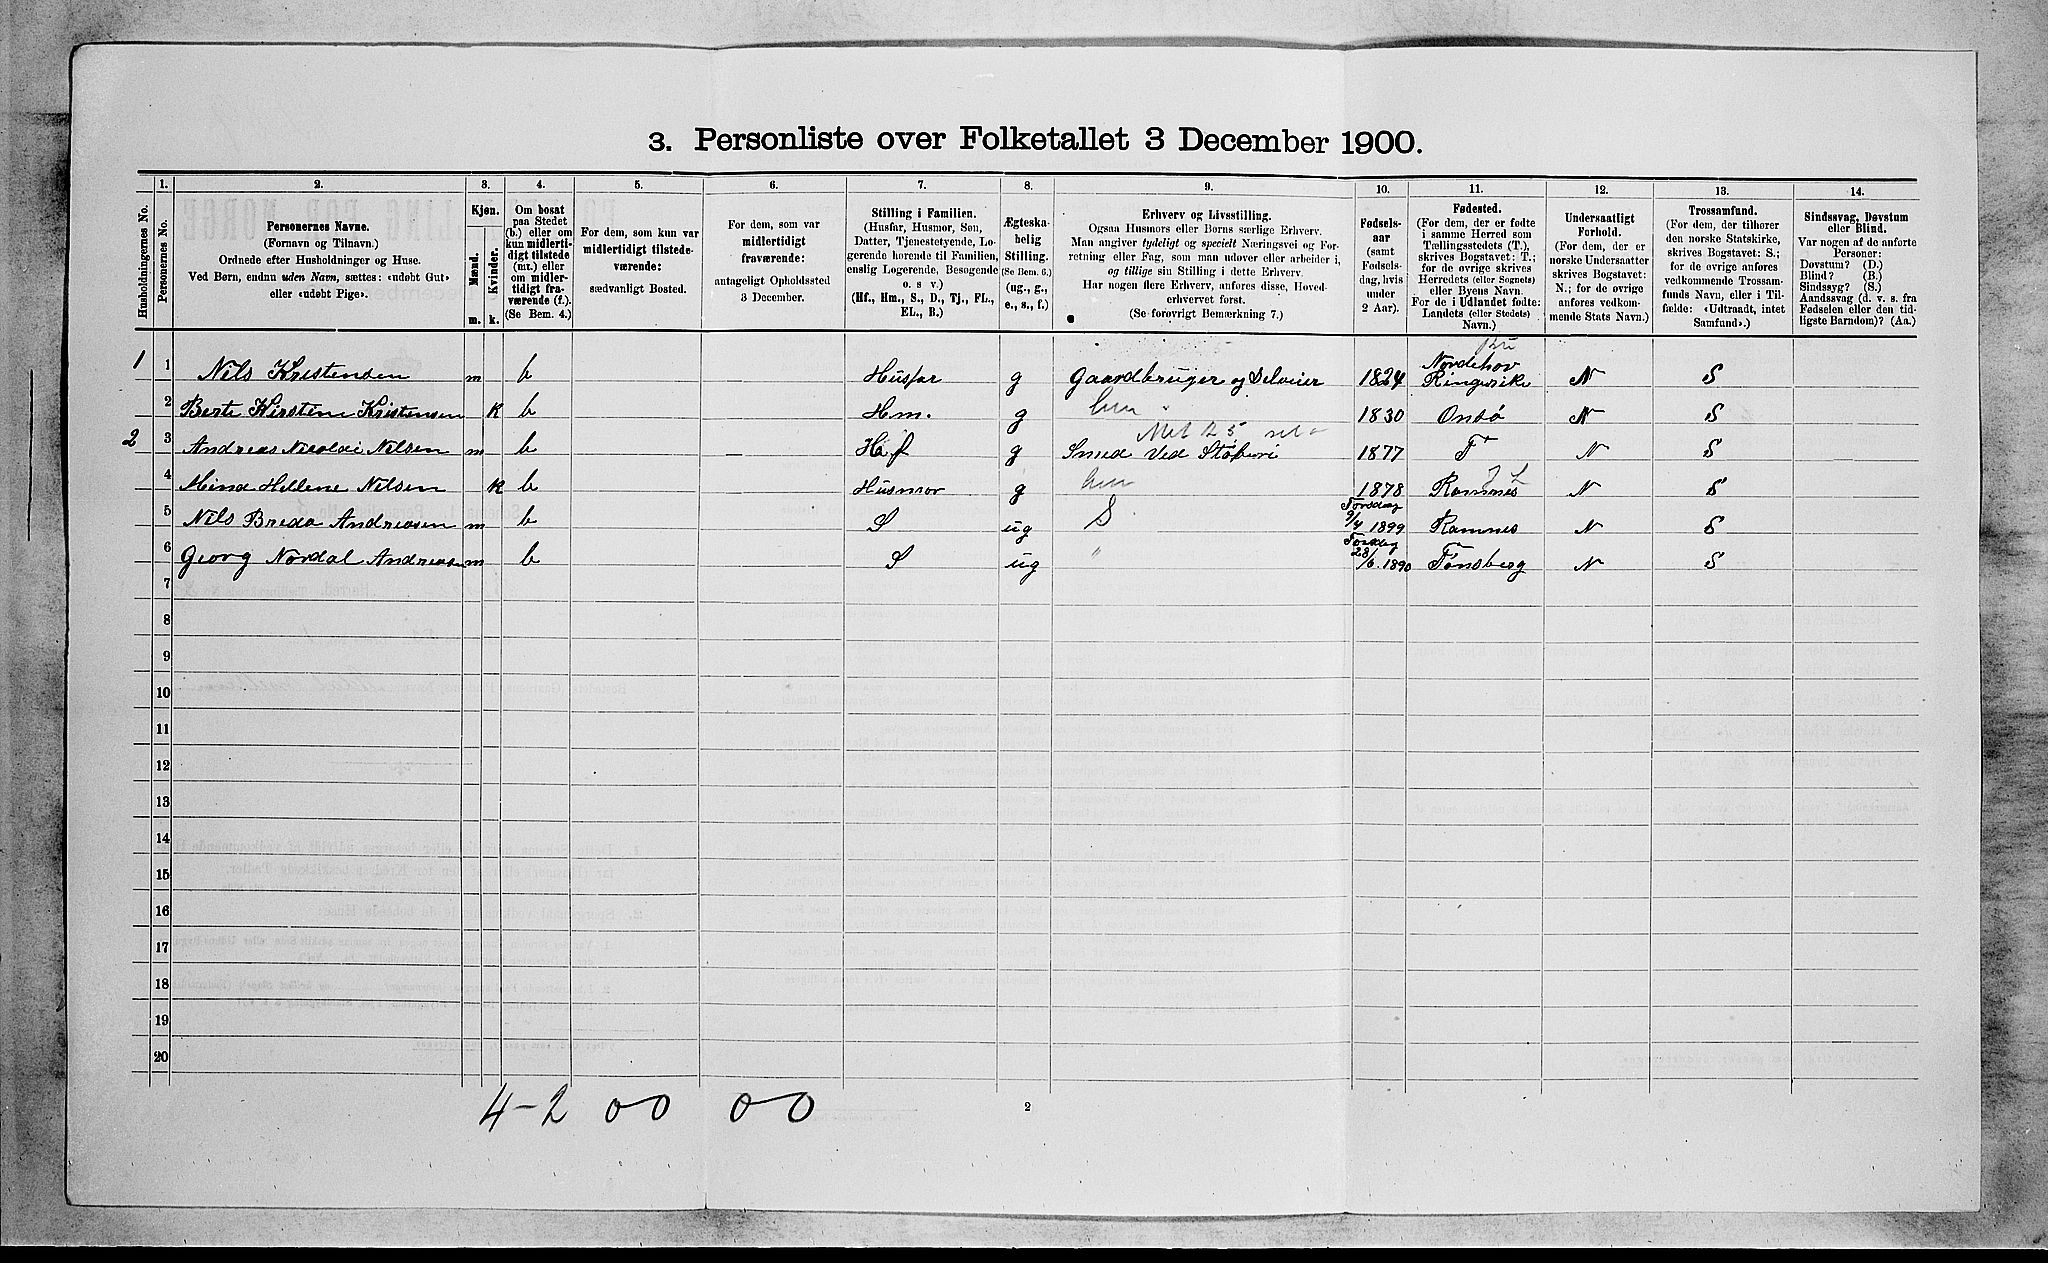 3. Personliste over Folketallet 3 December 1900.
Husholdningernes No.
1. Personernes No.
2. Personernes Navne.
(Fornavn og Tilnavn.)
Ordnede efter Husholdninger og Huse.
Ved Børn, endnu uden Navn, sættes: «udøbt Gut»
eller «udøbt Pige».
3. Kjøn.
Mænd. m.
Kvinder. k.
4. Om bosat
paa Stedet
(b.) eller om
kun midlerti-
digt tilstede
(mt.) eller
om midler-
tidigt fra-
værende (f.).
(Se Bem. 4.)
5. For dem, som kun var
midlertidigt tilstede-
værende:
sædvanligt Bosted.
6. For dem, som var
midlertidigt
fraværende:
antageligt Opholdssted
3 December.
7. Stilling i Familien.
(Husfar, Husmor, Søn,
Datter, Tjenestetyende, Lo-
gerende hørende til Familien,
enslig Logerende, Besøgende
o. s. v.)
(Hf., Hm., S., D., Tj., FL.,
EL., B.)
8. Ægteska-
belig
Stilling.
(Se Bem. 6.)
(ug., g.,
e., s., f.)
9. Erhverv og Livsstilling.
Ogsaa Husmors eller Børns særlige Erhverv.
Man angiver tydeligt og specielt Næringsvei og For-
retning eller Fag, som man udøver eller arbeider i,
og tillige sin Stilling i dette Erhverv.
Har nogen flere Erhverv, anføres disse, Hoved-
erhvervet først.
(Se forøvrigt Bemærkning 7.)
10. Fødsels-
aar
(samt
Fødsels-
dag, hvis
under
2 Aar).
11. Fødested.
(For dem, der er fødte
i samme Herred som
Tællingsstedets (T.),
skrives Bogstavet: T.;
for de øvrige skrives
Herredets (eller Sognets)
eller Byens Navn.
For de i Udlandet fødte:
Landets (eller Stedets)
Navn.)
12. Undersaatligt
Forhold.
(For dem, der er
norske Undersaatter
skrives Bogstavet:
N.; for de øvrige
anføres vedkom-
mende Stats Navn.)
13. Trossamfund.
(For dem, der tilhører
den norske Statskirke,
skrives Bogstavet: S.;
for de øvrige anføres
vedkommende Trossam-
funds Navn, eller i Til-
fælde: «Udtraadt, intet
Samfund».)
14. Sindssvag, Døvstum
eller Blind.
Var nogen af de anførte
Personer:
Døvstum? (D.)
Blind? (B.)
Sindssyg? (S.)
Aandssvag (d. v. s. fra
Fødselen eller den tid-
ligste Barndom)? (Aa.)
1 1 Nils Kristensen m b Husfar g Gaardbruger og Selveier 1824 Nordehov Ringerike N S
2 Berte Kirstine Kristensen k b Hm. g 1830 Onsö N S
2 3 Andreas Nicolai Nilsen m b Hf g Smed Ved Støberi 1877 T N S
4 Mina Hellene Nilsen k b Husmor g 1878 Ramnes N S
5 Nils Breda Andreasen m b S ug S 9/4 1899 Ramnes N S
6 Georg Nordal Andreasen m b S ug " 28/6 1890 Tönsberg N S
7
8
9
10
11
12
13
14
15
16
17
18
19
20
4-2 00 00
2